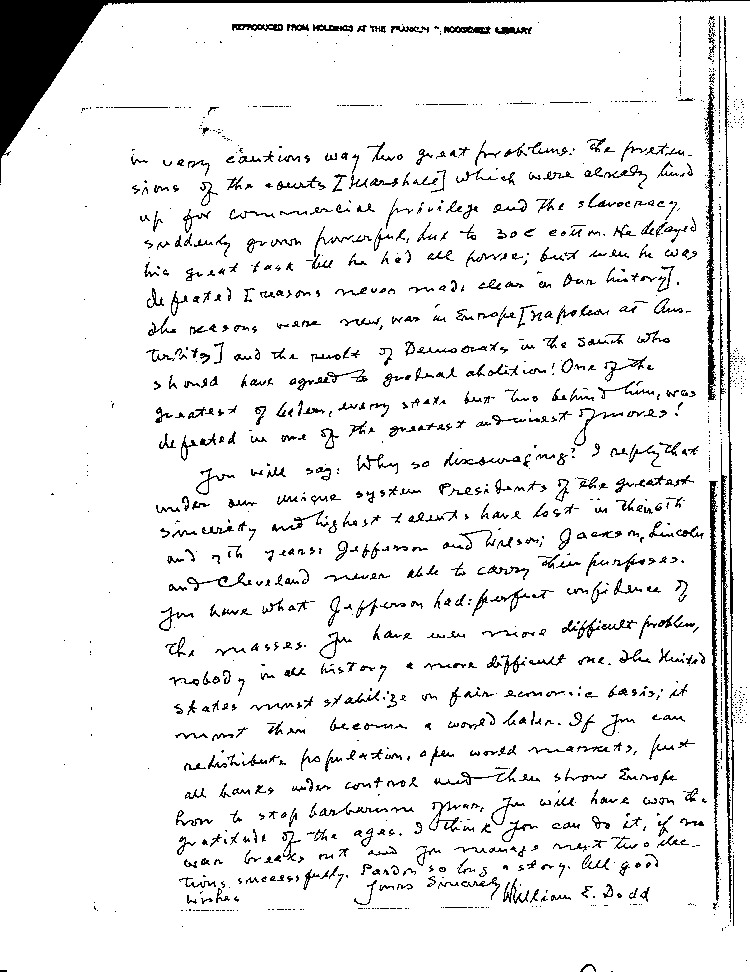 REPRODUCED FROM HOLDINGS AT THE FRANKLIN D. ROOSEVELT LIBRARY
in very cautious way two great problems: the preten-
sions of the courts [Marshall] which were already lined
up for commercial privilege and the slavocracy,
suddenly grown powerful, due to 30¢ cotton. He delayed
his great task till he had all power; but even he was
defeated [reasons never made clear in our history].
The reasons were new, war in Europe [Napoleon at Aus-
terlitz] and the revolt of Democrats in the South who
should have agreed to gradual abolition! One of the
greatest of leaders, every state but two behind him, was
defeated in one of the greatest and wisest of moves!
You will say: Why so discouraging? I reply that
under our unique system Presidents of the greatest
sincerity and highest talents have lost in their 6th
and 7th years: Jefferson and Wilson; Jackson, Lincoln
and Cleveland never able to carry their purposes.
You have what Jefferson had: perfect confidence of
the masses. You have even more difficult problem,
nobody in all history a more difficult one. The United
States must stabilize on fair economic basis; it
must then become a world leader. If you can
redistribute population, open world markets, put
all banks under control and then show Europe
how to stop barbarism of war, you will have won the
gratitude of the ages. I think you can do it, if no
war breaks out and you manage next two elec-
tions successfully. Pardon so long a story. All good
wishes Yours Sincerely William E. Dodd